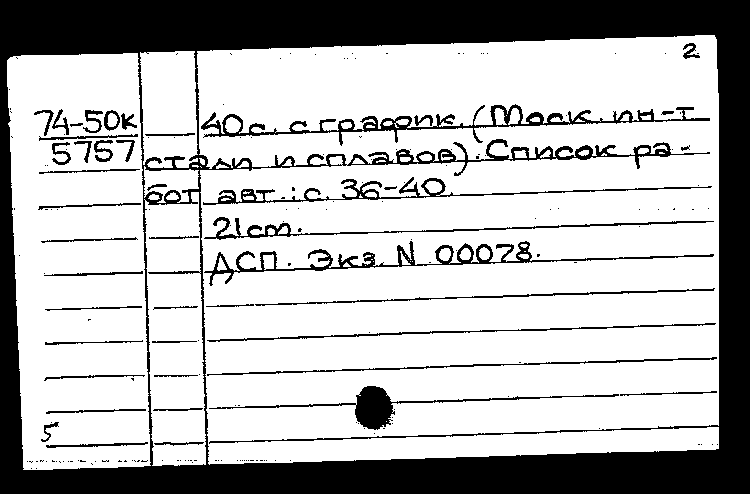 2
74-50к 40с. с график. (Моск. ин-т
5757 стали и сплавов). Список ра-
бот авт.: с. 36-40.
21cm.
ДСП. Экз. N 00078.
5